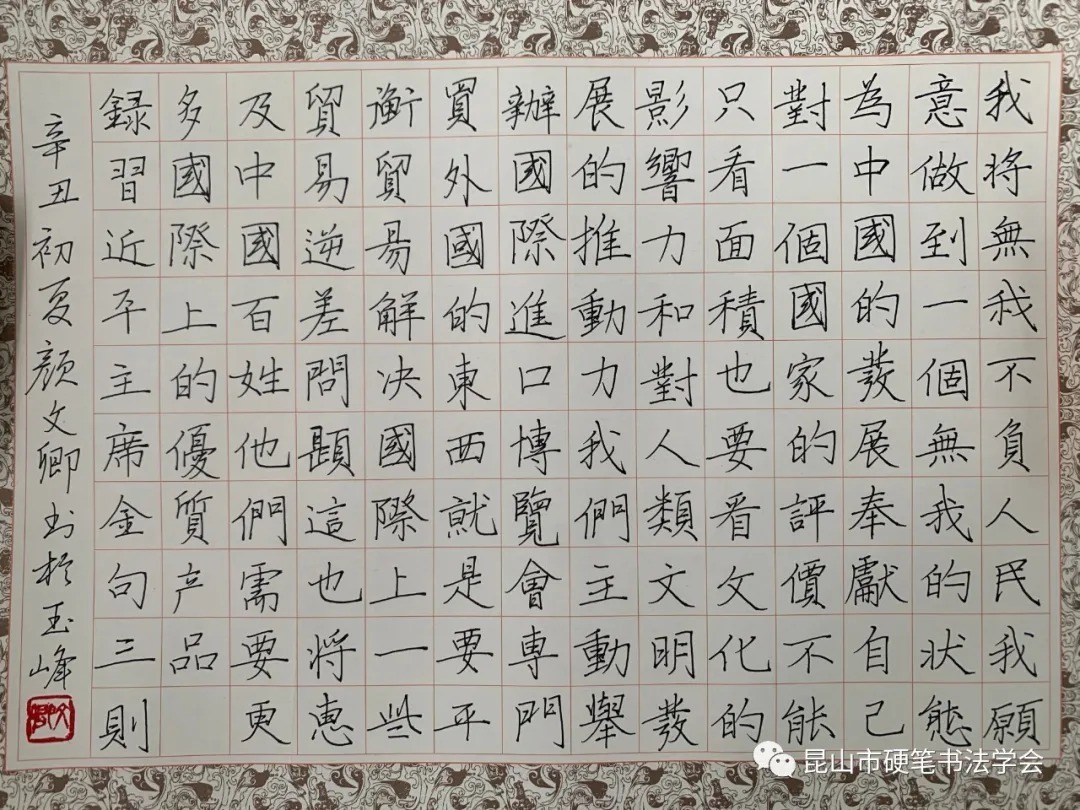 我將無我不負人民我願
意做到一個無我的狀態
為中國的發展奉獻自己
對一個國家的評價不能
只看面積也要看文化的
影響力和對人類文明發
展的推動力我們主動舉
辦國際進口博覽會專門
買外國的東西就是要平
衡貿易解決國際上一些
貿易逆差問題這也將惠
及中國百姓他們需要更
多國際上的優質产品
録習近平主席金句三則
辛丑初夏顏文卿书於玉峰
昆山市硬笔书法学会